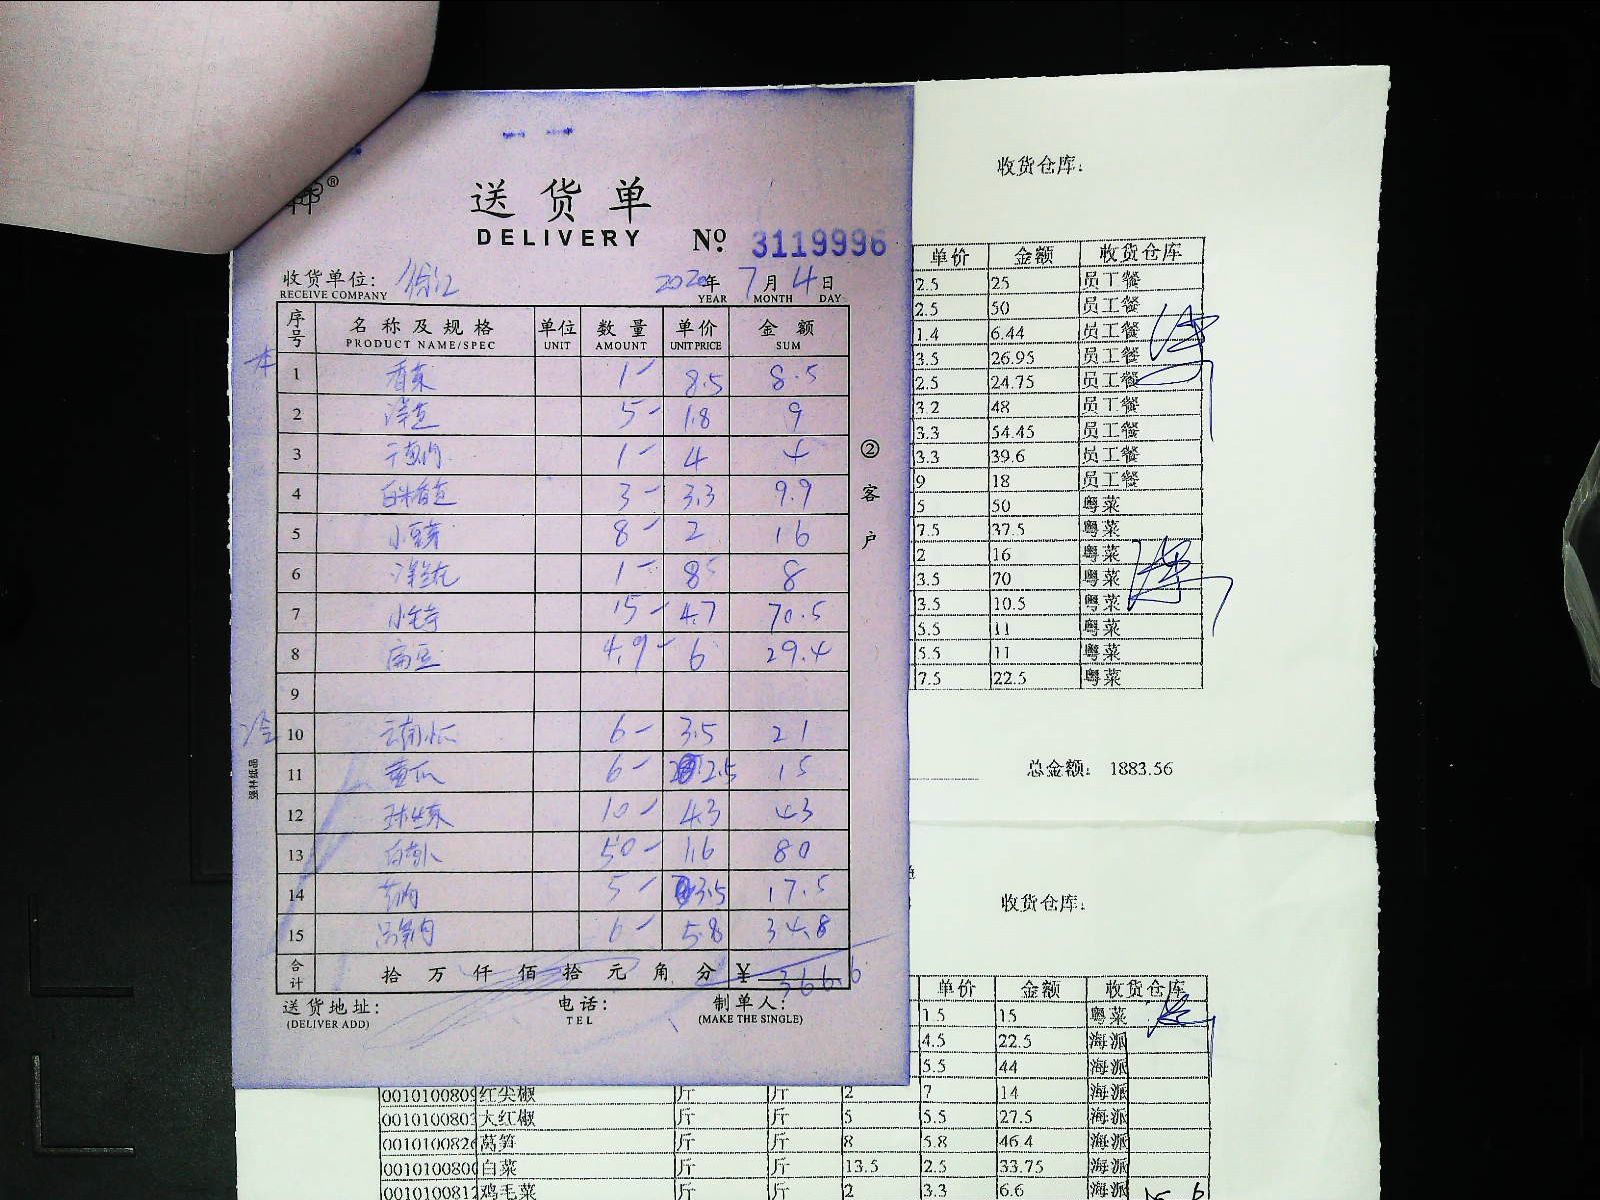 送货单
DELIVERY
№ 3119996
收货单位: 徐汇 2020年 7月 4日
RECEIVE COMPANY YEAR MONTH DAY
序号 名称及规格 单位 数量 单价 金额
PRODUCT NAME/SPEC UNIT AMOUNT UNIT PRICE SUM
本
1 香菜 1- 8.5 8.5
2 洋芝 5- 1.8 9
3 干葱肉 1- 4 4
4 白米苋 3- 3.3 9.9
5 小豆芽 8- 2 16
6 洋兰花 1- 8 8
7 15- 4.7 70.5
8 扁豆 4.9- 6 29.4
9
冷
10 云南小瓜 6- 3.5 21
11 黄瓜 6- 2.5 15
12 球生菜 10- 4.3 43
13 白萝卜 50- 1.6 80
14 5- 3.5 17.5
15 莴笋肉 6- 5.8 34.8
合计 拾 万 仟 佰 拾 元 角 分 ¥ 366.6
送货地址: 电话: 制单人:
(DELIVER ADD) TEL (MAKE THE SINGLE)
② 客户
强林纸品
收货仓库:
单价 金额 收货仓库
2.5 25 员工餐
2.5 50 员工餐
1.4 6.44 员工餐
3.5 26.95 员工餐
2.5 24.75 员工餐
3.2 48 员工餐
3.3 54.45 员工餐
3.3 39.6 员工餐
9 18 员工餐
5 50 粤菜
7.5 37.5 粤菜
2 16 粤菜
3.5 70 粤菜
3.5 10.5 粤菜
5.5 11 粤菜
5.5 11 粤菜
7.5 22.5 粤菜
总金额: 1883.56
收货仓库:
单价 金额 收货仓库
1.5 15 粤菜
4.5 22.5 海派
5.5 44 海派
红尖椒 斤 斤 2 7 14 海派
大红椒 斤 斤 5 5.5 27.5 海派
莴笋 斤 斤 8 5.8 46.4 海派
白菜 斤 斤 13.5 2.5 33.75 海派
鸡毛菜 斤 斤 2 3.3 6.6 海派